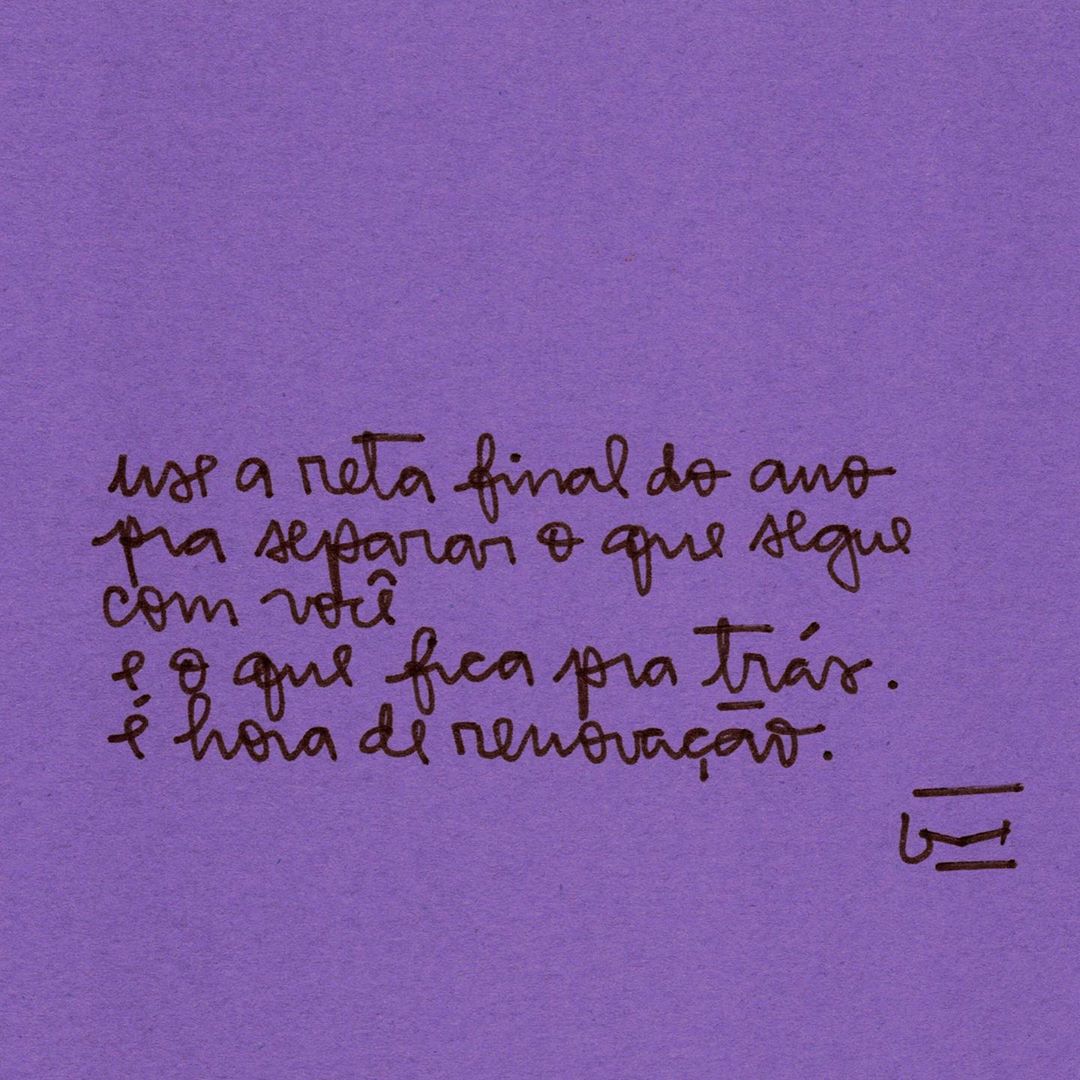 use a reta final do ano
pra separar o que segue
com você
e o que fica pra trás.
é hora de renovação.